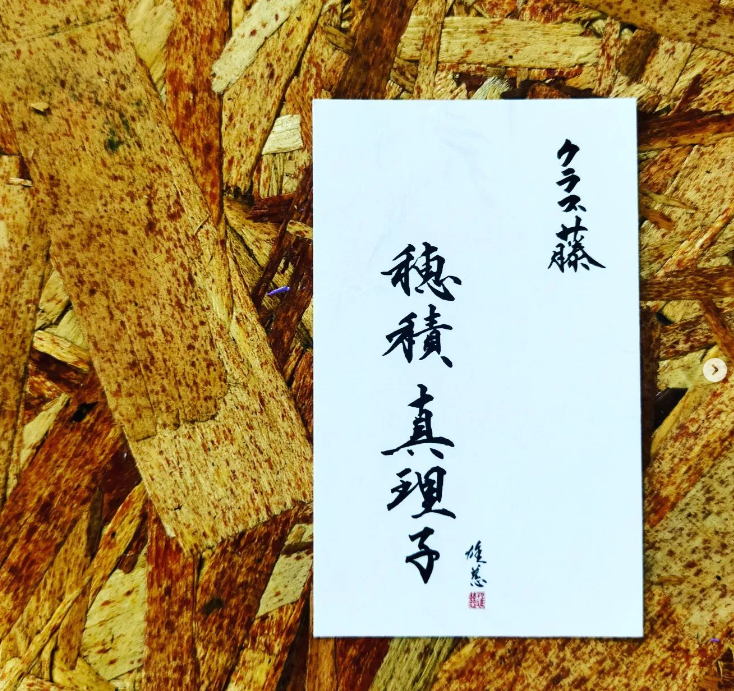 クラス藤
穂積 真理子